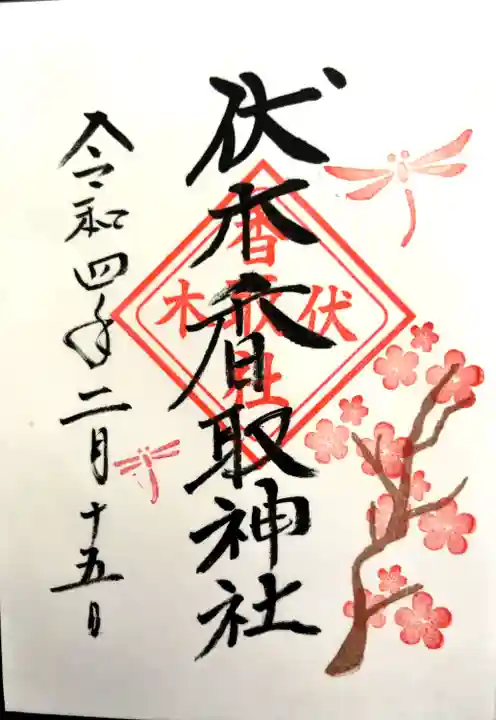 伏木香取神社
伏木
香取社
令和四年二月十五日